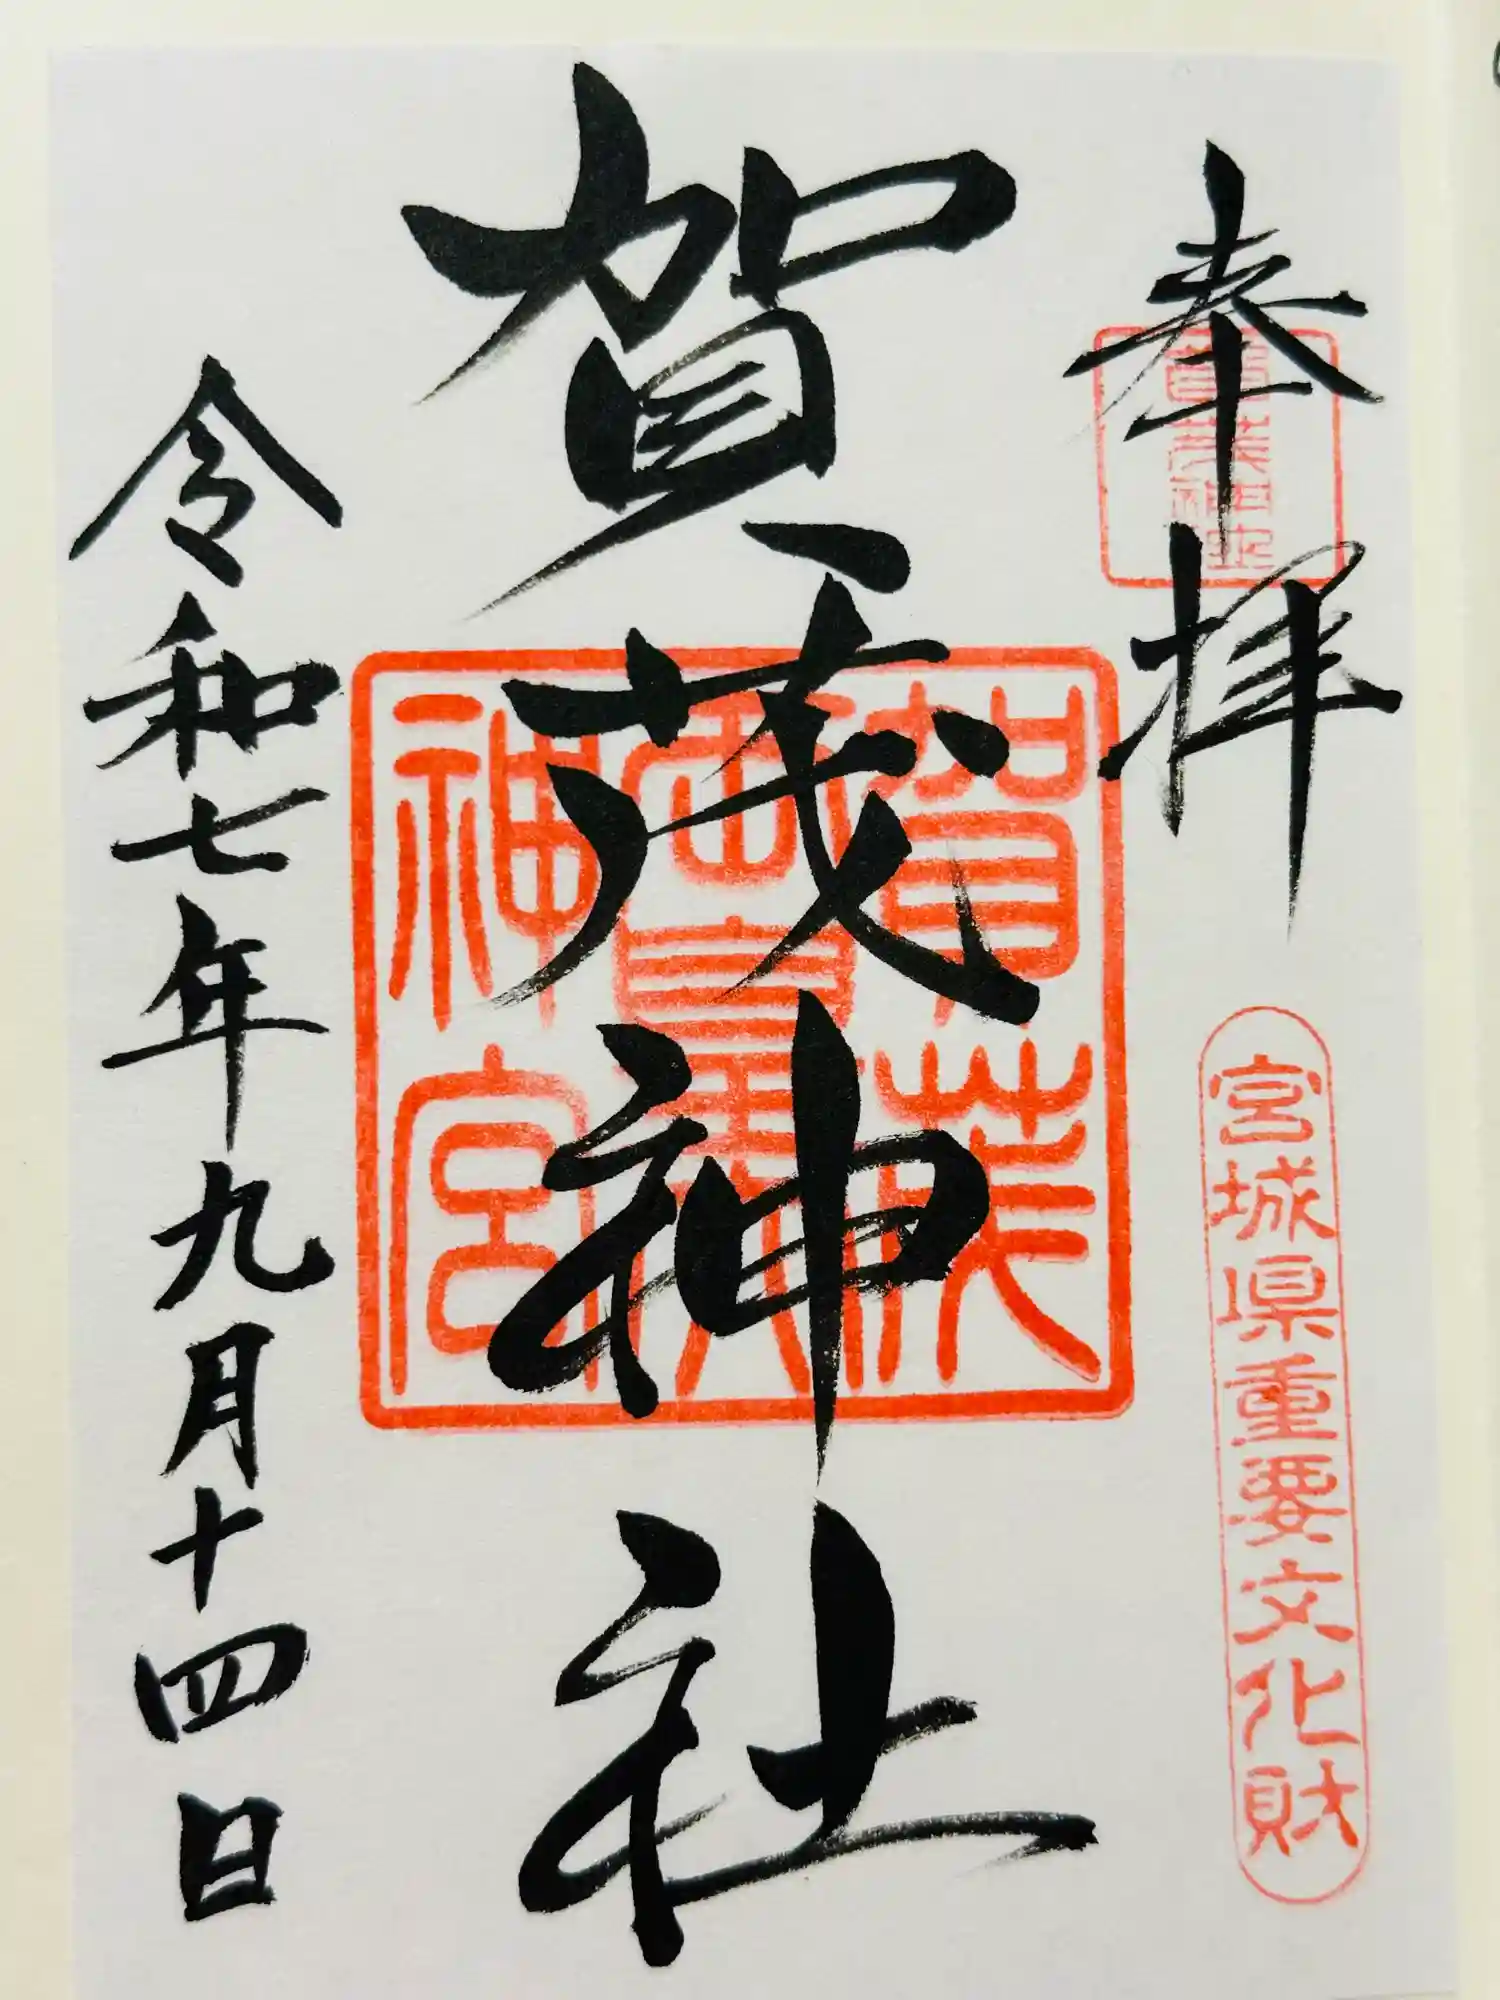 奉拝
宮城県重要文化財
賀茂神社
賀茂
神宮
令和七年九月十四日